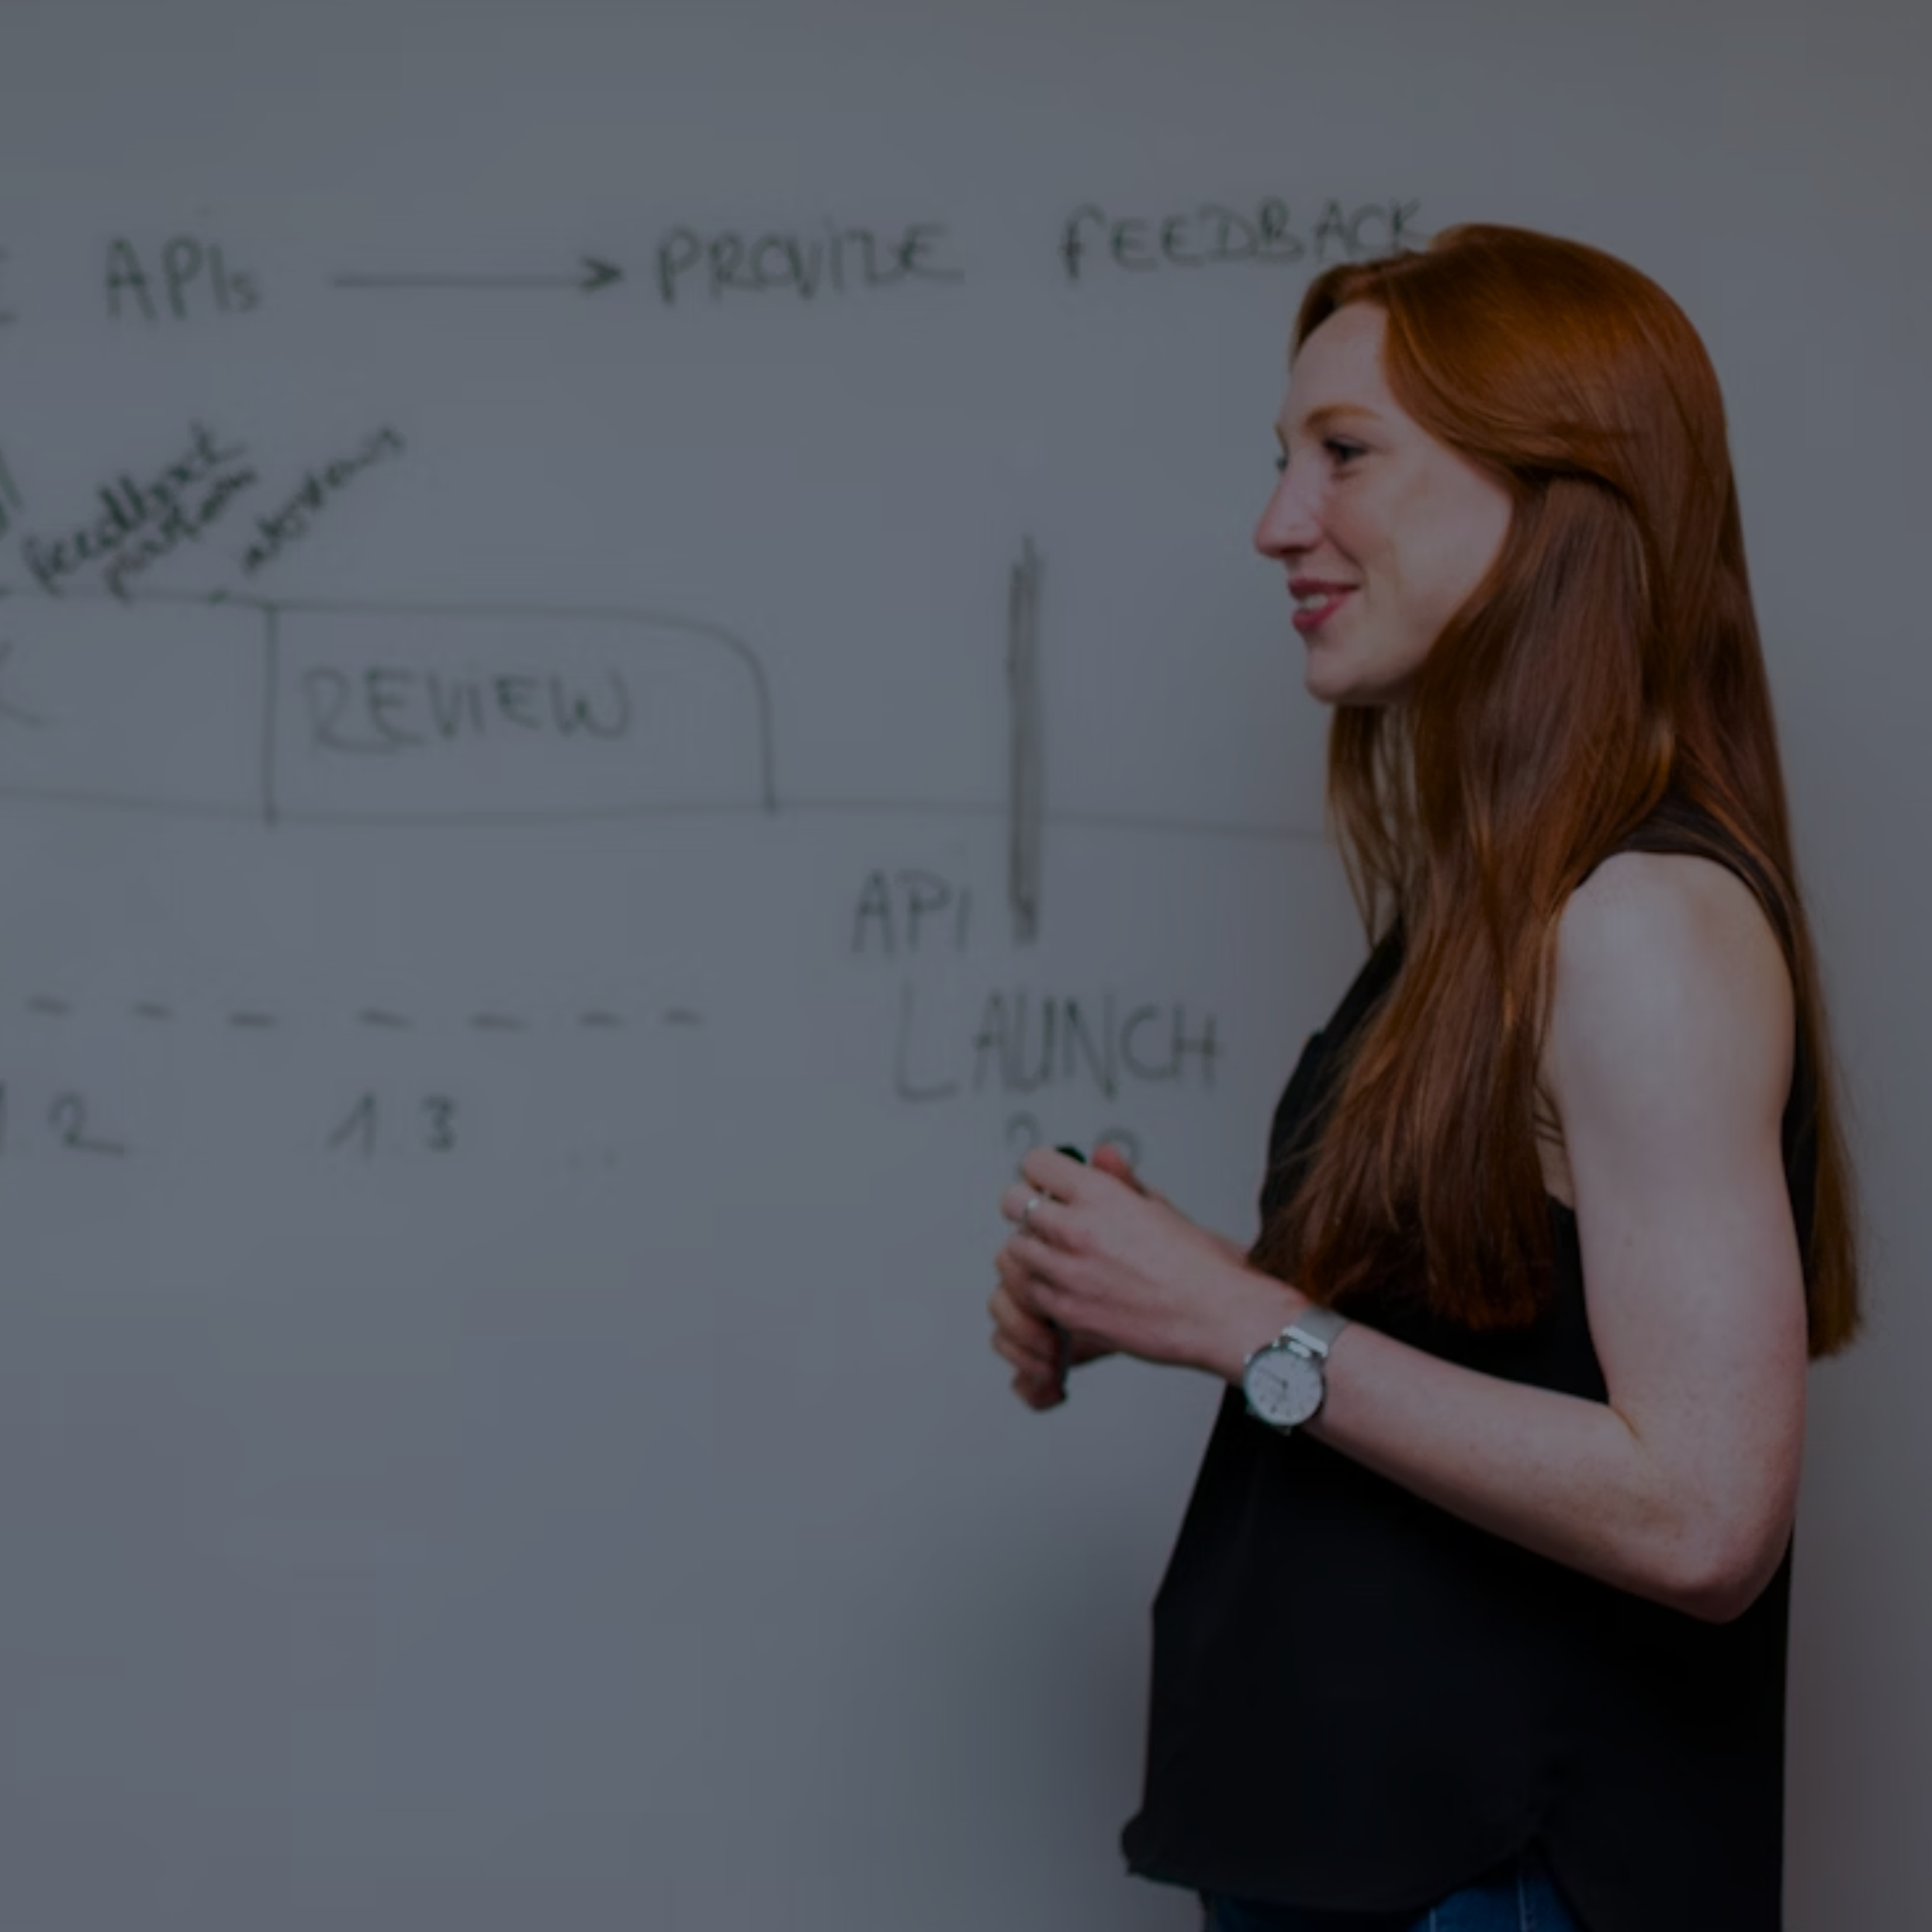 APIs → PROVIDE FEEDBACK
feedback
REVIEW
API
LAUNCH
1.2 1.3